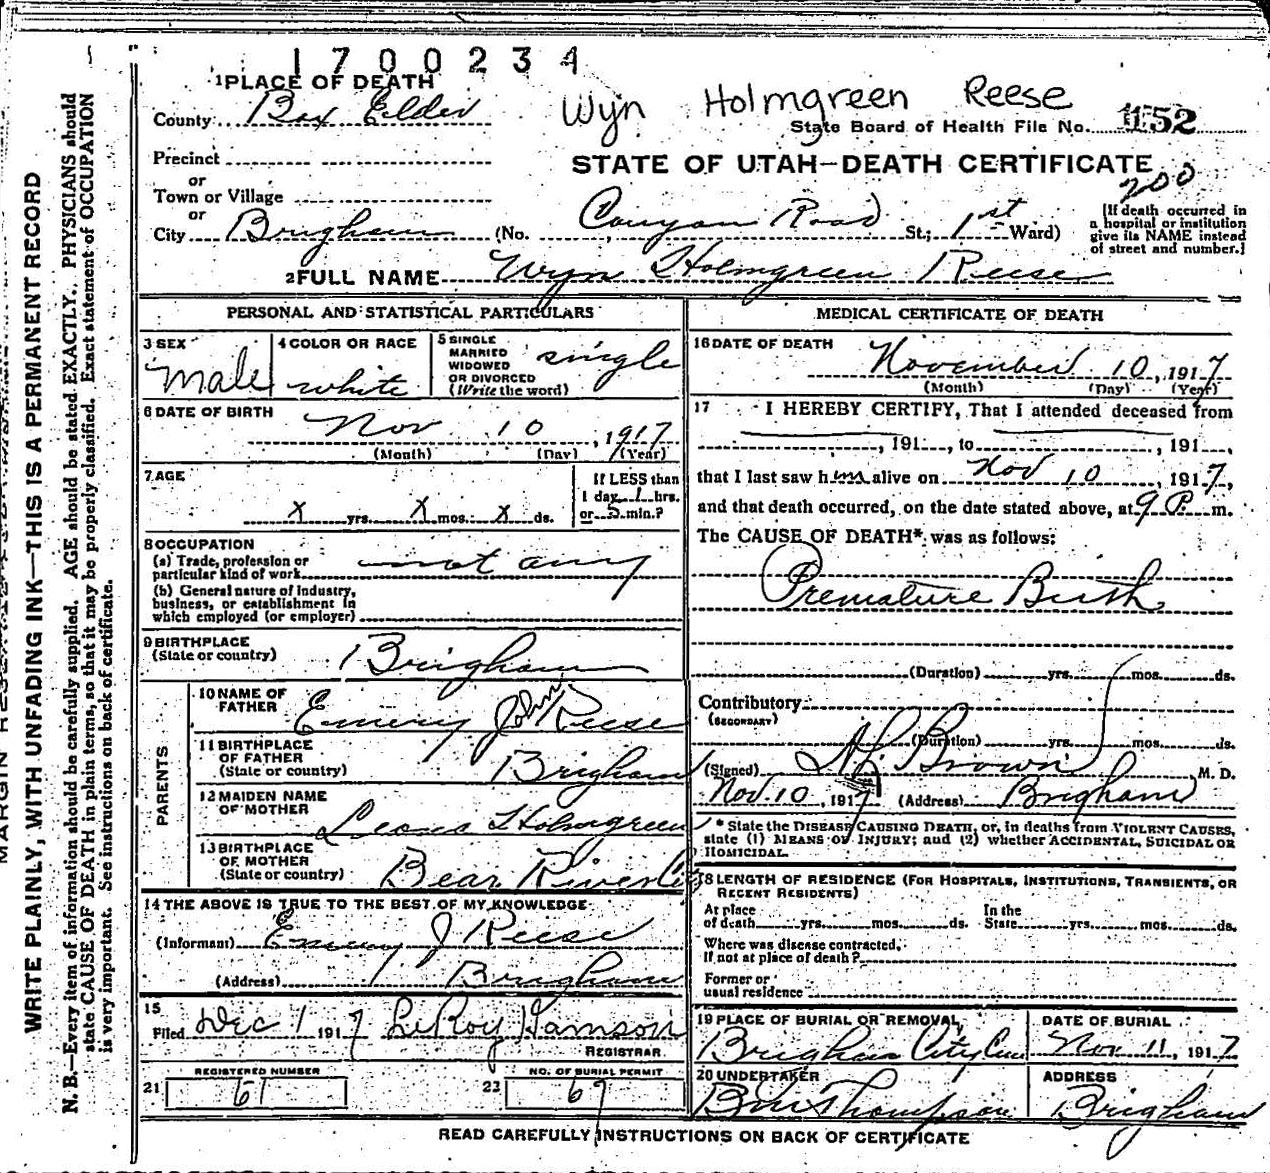 1700234
1 PLACE OF DEATH
Wyn Holmgreen Reese
County Box Elder
State Board of Health File No. 152
Precinct
STATE OF UTAH—DEATH CERTIFICATE
200
or
Town or Village
or
City Brigham (No. Canyon Road St.; 1st Ward)
[If death occurred in
a hospital or institution
give its NAME instead
of street and number.]
2 FULL NAME Wyn Holmgreen Reese
PERSONAL AND STATISTICAL PARTICULARS
3 SEX
male
4 COLOR OR RACE
white
5 SINGLE
MARRIED
WIDOWED
OR DIVORCED
(Write the word)
single
6 DATE OF BIRTH
Nov 10, 1917
(Month) (Day) (Year)
7 AGE
x yrs. x mos. x ds.
If LESS than
1 day 1 hrs.
or 5 min.?
8 OCCUPATION
(a) Trade, profession or
particular kind of work not any
(b) General nature of Industry,
business, or establishment in
which employed (or employer)
9 BIRTHPLACE
(State or country) Brigham
PARENTS
10 NAME OF
FATHER Emery John Reese
11 BIRTHPLACE
OF FATHER
(State or country) Brigham
12 MAIDEN NAME
OF MOTHER Leona Holmgreen
13 BIRTHPLACE
OF MOTHER
(State or country) Bear River Ci
14 THE ABOVE IS TRUE TO THE BEST OF MY KNOWLEDGE
(Informant) Emery J Reese
(Address) Brigham
15
Filed Dec 1 1917 LeRoy Hamson
REGISTRAR
REGISTERED NUMBER
21 61
NO. OF BURIAL PERMIT
22 69
MEDICAL CERTIFICATE OF DEATH
16 DATE OF DEATH
November 10, 1917
(Month) (Day) (Year)
17 I HEREBY CERTIFY, That I attended deceased from
, 191 , to , 191 ,
that I last saw him alive on Nov 10, 1917,
and that death occurred, on the date stated above, at 9 P. m.
The CAUSE OF DEATH* was as follows:
Premature Birth
(Duration) yrs. mos. ds.
Contributory
(SECONDARY)
(Duration) yrs. mos. ds.
(Signed) Brown M. D.
Nov. 10, 1917 (Address) Brigham
* State the DISEASE CAUSING DEATH, or, in deaths from VIOLENT CAUSES,
state (1) MEANS OF INJURY; and (2) whether ACCIDENTAL, SUICIDAL OR
HOMICIDAL.
18 LENGTH OF RESIDENCE (FOR HOSPITALS, INSTITUTIONS, TRANSIENTS, OR
RECENT RESIDENTS)
At place
of death yrs. mos. ds.
In the
State yrs. mos. ds.
Where was disease contracted,
If not at place of death?
Former or
usual residence
19 PLACE OF BURIAL OR REMOVAL
Brigham City Cem
DATE OF BURIAL
Nov 11, 1917
20 UNDERTAKER
Thompson
ADDRESS
Brigham
READ CAREFULLY INSTRUCTIONS ON BACK OF CERTIFICATE
WRITE PLAINLY, WITH UNFADING INK—THIS IS A PERMANENT RECORD
N. B.—Every item of information should be carefully supplied. AGE should be stated EXACTLY. PHYSICIANS should
state CAUSE OF DEATH in plain terms, so that it may be properly classified. Exact statement of OCCUPATION
is very important. See instructions on back of certificate.